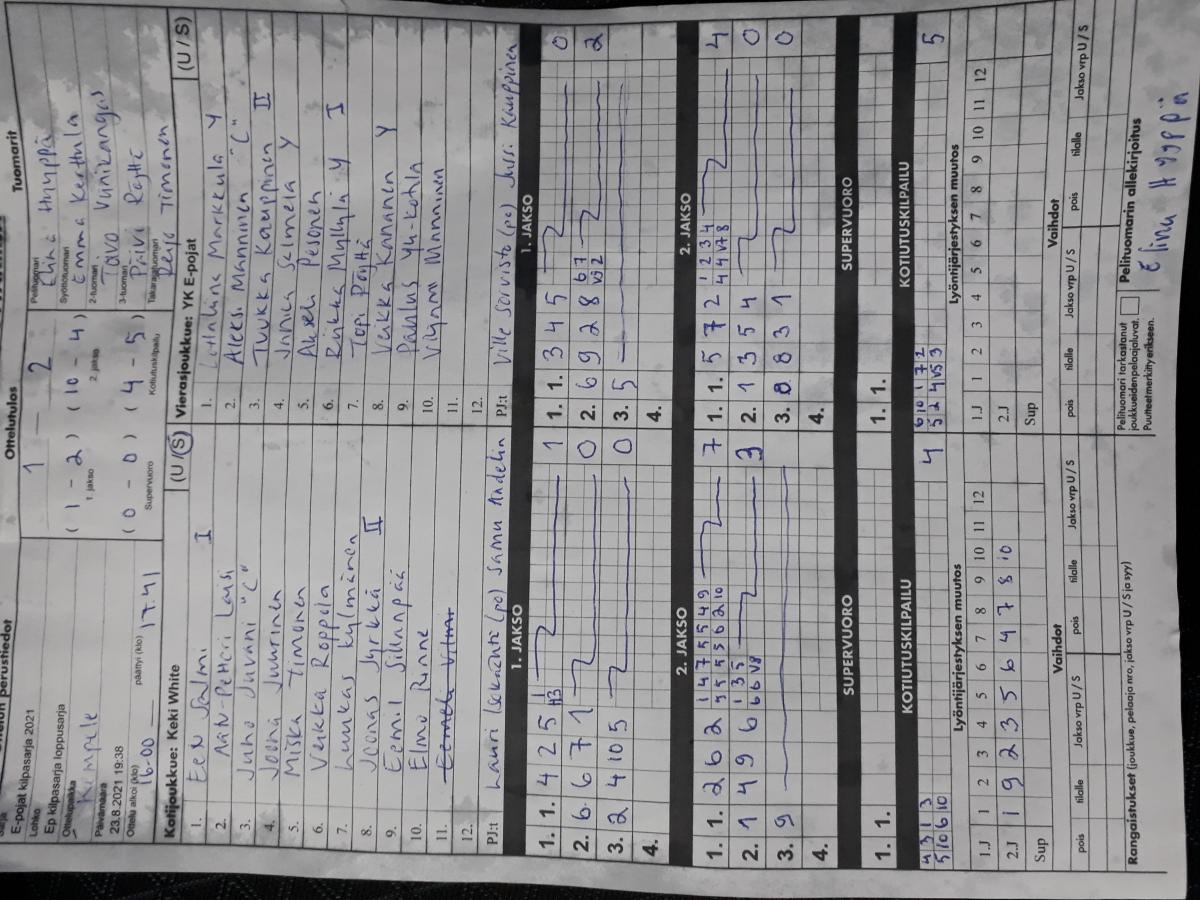 Ottelun perustiedot
Ottelutulos
Tuomarit
Sarja
E-pojat kilpasarja 2021
Lohko
Ep kilpasarja loppusarja
Ottelupaikka
Kempele
Päivämäärä
23.8.2021 19:38
Ottelu alkoi (klo)
16.00
päättyi (klo)
17.41
1 — 2
( 1 - 2 ) ( 10 - 4 )
1. jakso 2. jakso
( 0 - 0 ) ( 4 - 5 )
Supervuoro Kotiutuskilpailu
Pelituomari
Elina Hyyppä
Syöttötuomari
Emma Kerttula
2-tuomari
Taavo Vunikangas
3-tuomari
Päivi Räyttä
Takarajatuomari
Reijo Timonen
Kotijoukkue: Keki White (U / S)
1. Eex Salmi I
2. Nalv-Petteri Lausi
3. Juho Juvani "C"
4. Joona Juurinen
5. Miska Timonen
6. Veikka Roppola
7. Luukas Kylmänen
8. Joonas Jyrkkä II
9. Eemil Sillanpää
10. Elmo Rinne
11.
12.
PJ:t Lauri Isokääntä (po) Samu Andelin
Vierasjoukkue: YK E-pojat (U / S)
1. Markkula Y
2. Aleksi Manninen "C"
3. Tuukka Kauppinen II
4. Junia Selmelä Y
5. Akseli Pesonen
6. Riikka Myllylä Y I
7. Topi Pöyttä
8. Veikka Kananen Y
9. Paulus Yli-Kotila
10. Ilmari Manninen
11.
12.
PJ:t Ville Sorvisto (po) Jussi Kauppinen
1. JAKSO
1. 1. 4 2 5 1 1
H3
2. 6 6 7 1 0
3. 2 4 10 5 0
4.
1. JAKSO
1. 1. 3 4 5 0
2. 6 9 2 8 6 7 2
V9 2
3. 5
4.
2. JAKSO
1. 1. 2 6 2 1 4 7 5 5 4 9 7
9 5 5 5 6 2 10
2. 1 4 9 6 1 3 5 3
6 6 V8
3. 9
4.
2. JAKSO
1. 1. 5 7 2 1 2 3 4 4
4 4 V7 8
2. 1 3 5 4 0
3. 8 8 3 1 0
4.
SUPERVUORO
1. 1.
SUPERVUORO
1. 1.
KOTIUTUSKILPAILU
4 3 1 3 4
5 10 6 10
KOTIUTUSKILPAILU
6 10 1 7 2 5
5 2 4 V5 3
Lyöntijärjestyksen muutos
1.J 1 2 3 4 5 6 7 8 9 10 11 12
2.J 1 9 2 3 5 6 4 7 8 10
Sup
Lyöntijärjestyksen muutos
1.J 1 2 3 4 5 6 7 8 9 10 11 12
2.J
Sup
Vaihdot
pois tilalle Jakso vrp U / S pois tilalle Jakso vrp U / S
Vaihdot
pois tilalle Jakso vrp U / S pois tilalle Jakso vrp U / S
Rangaistukset (joukkue, pelaaja nro, jakso vrp U / S ja syy)
Pelituomari tarkastanut
joukkueiden pelaajaluvat.
Puutteet merkitty erikseen.
Pelituomarin allekirjoitus
Elina Hyyppä